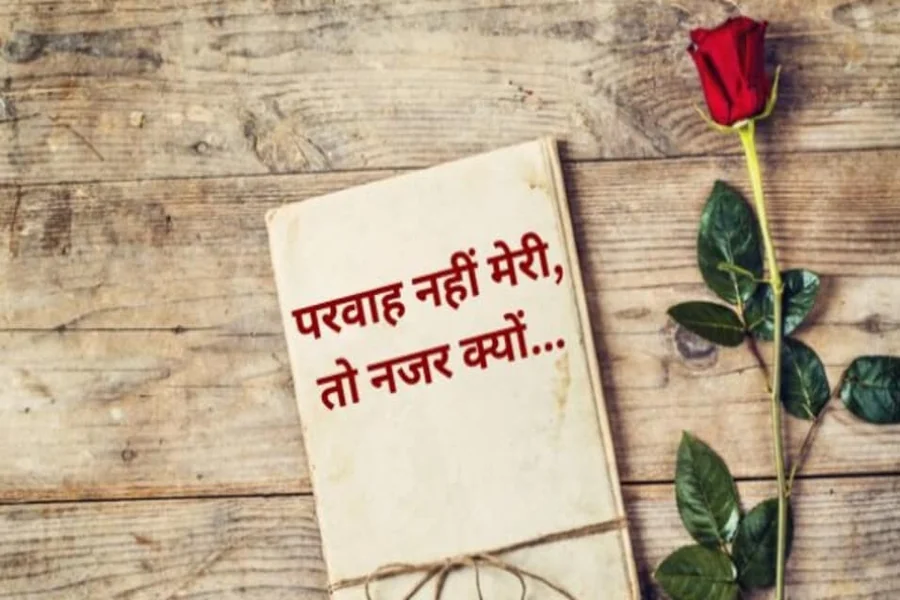 परवाह नहीं मेरी,
तो नजर क्यों...